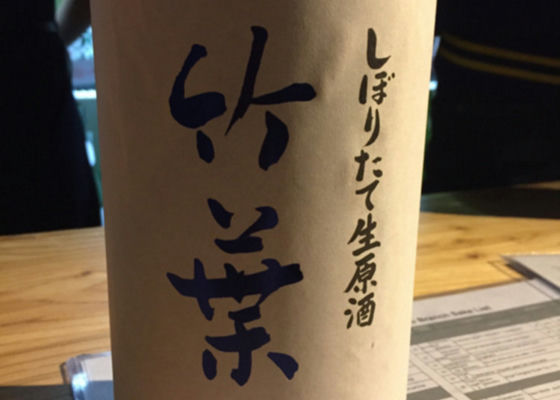 しぼりたて生原酒
竹葉
Sake List